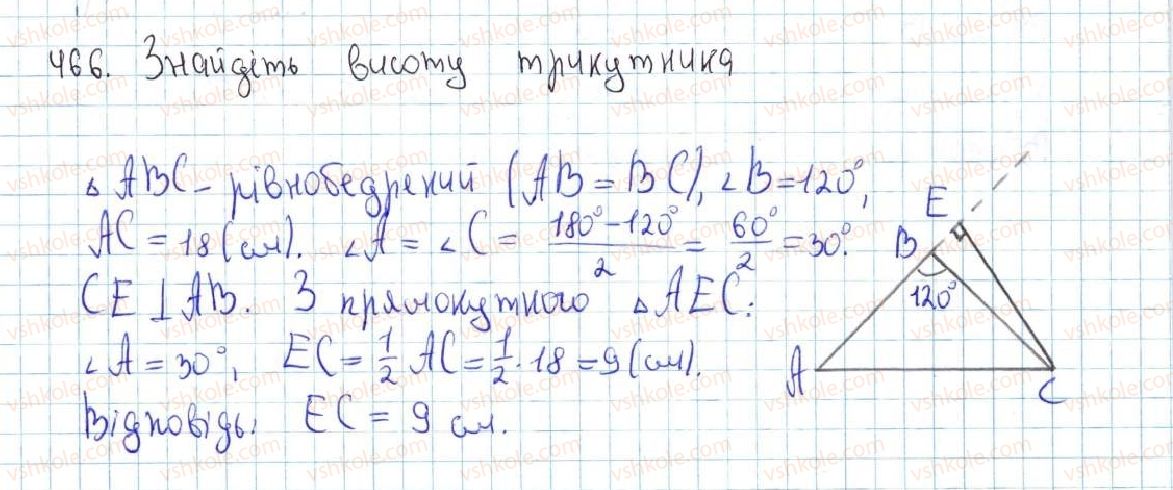 466. Знайдіть висоту трикутника
△ ABC – рівнобедрений (AB = BC), ∠B = 120°,
AC = 18 (см). ∠A = ∠C = (180° – 120°)/2 = 60°/2 = 30°.
CE ⊥ AB. З прямокутного △ AEC:
∠A = 30°, EC = 1/2 AC = 1/2 · 18 = 9 (см).
Відповідь: EC = 9 см.
E
B
120°
A
C
vshkole.com